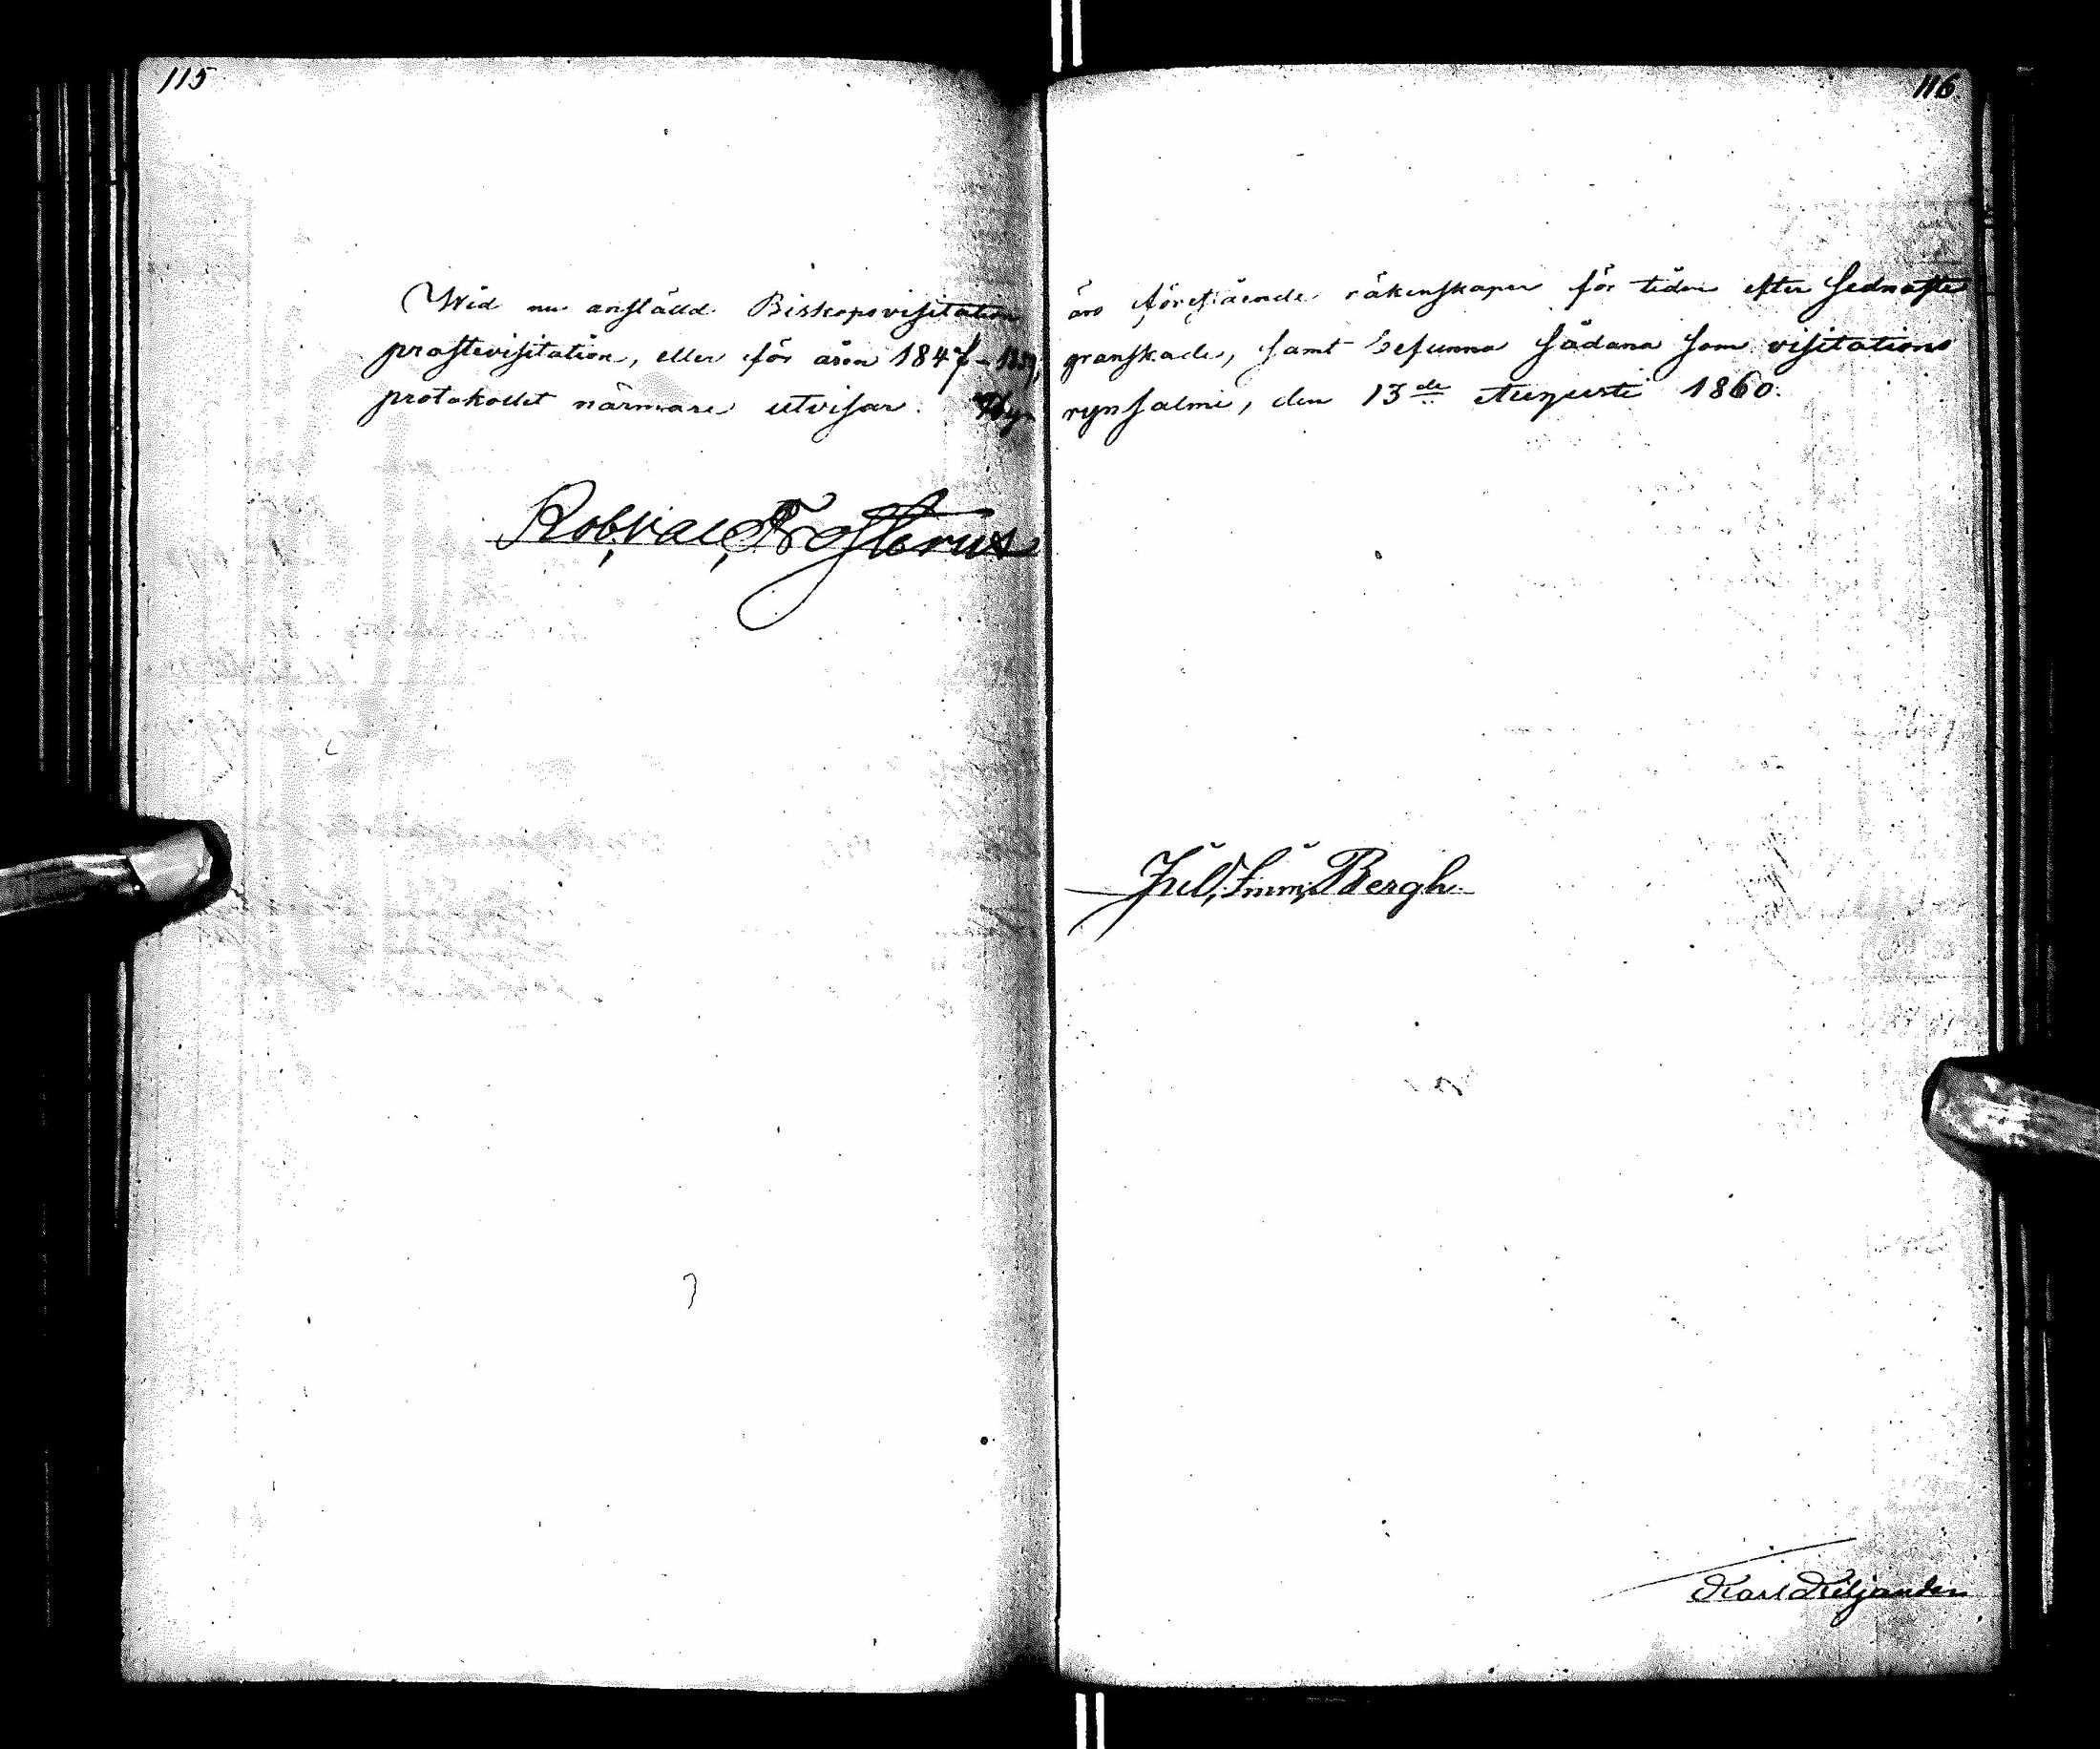 115
116
Wid nu anställd Biskopsvisitation äro förestående räkenskaper för tiden efter sednaste
prostevisitation, eller för åren 1847-1859, granskade, samt befunna sådana som visitations
protokollet närmare utvisar. Hyrynsalmi, den 13de Augusti 1860.
Rob, Val, Frosterus
Jul, Imm, Bergh
Karl Kiljander